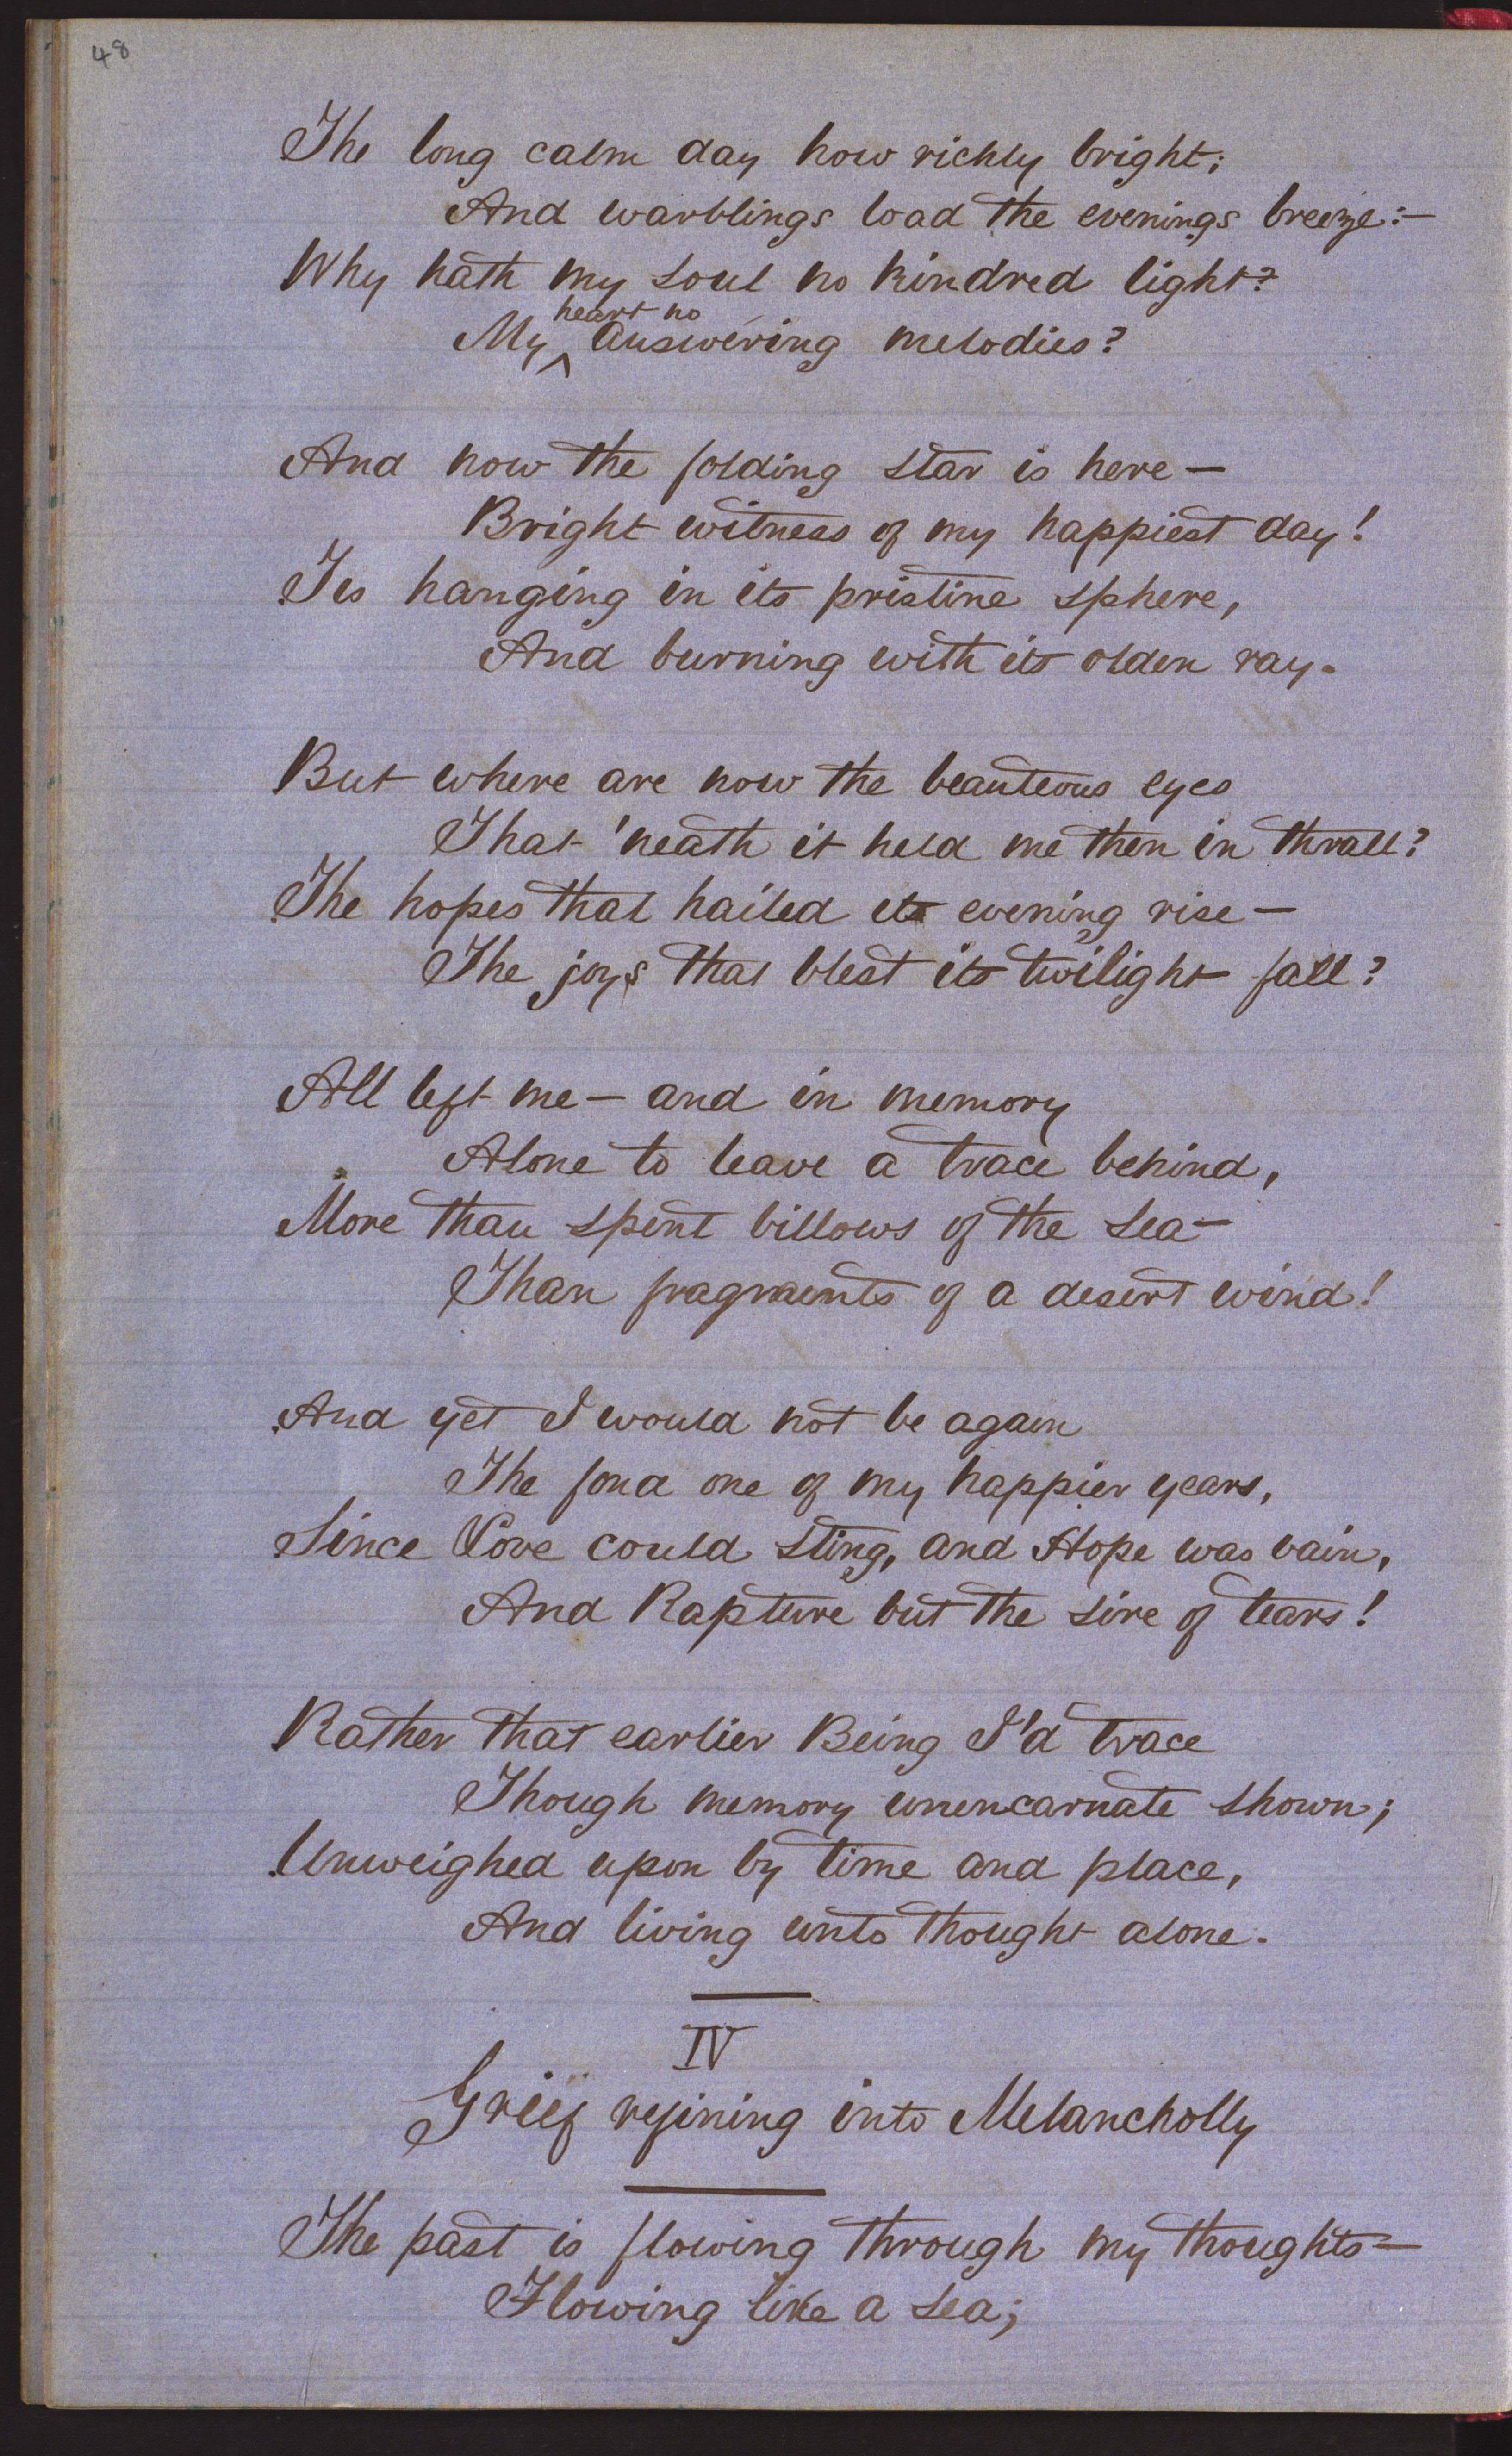 48
The long calm day how richly bright;
And warblings load the evenings breeze:—
Why hath my soul no kindred light?
heart no
My ^ answering melodies?
And now the folding star is here —
Bright witness of my happiest day!
Tis hanging in its pristine sphere,
And burning with its olden ray.
But where are now the beauteous eyes
That 'neath it held me then in thrall?
The hopes that hailed its evening rise —
The joys that blest its twilight fall?
All left me — and in memory
Alone to leave a trace behind,
More than spent billows of the sea —
Than fragments of a desert wind!
And yet I would not be again
The fond one of my happier years,
Since Love could sting, and Hope was vain,
And Rapture but the sire of tears!
Rather that earlier Being I'd trace
Though memory unencarnate shown;
Unweighed upon by time and place,
And living unto thought alone.
IV
Grief refining into Melancholly
The past is flowing through my thoughts —
Flowing like a sea;